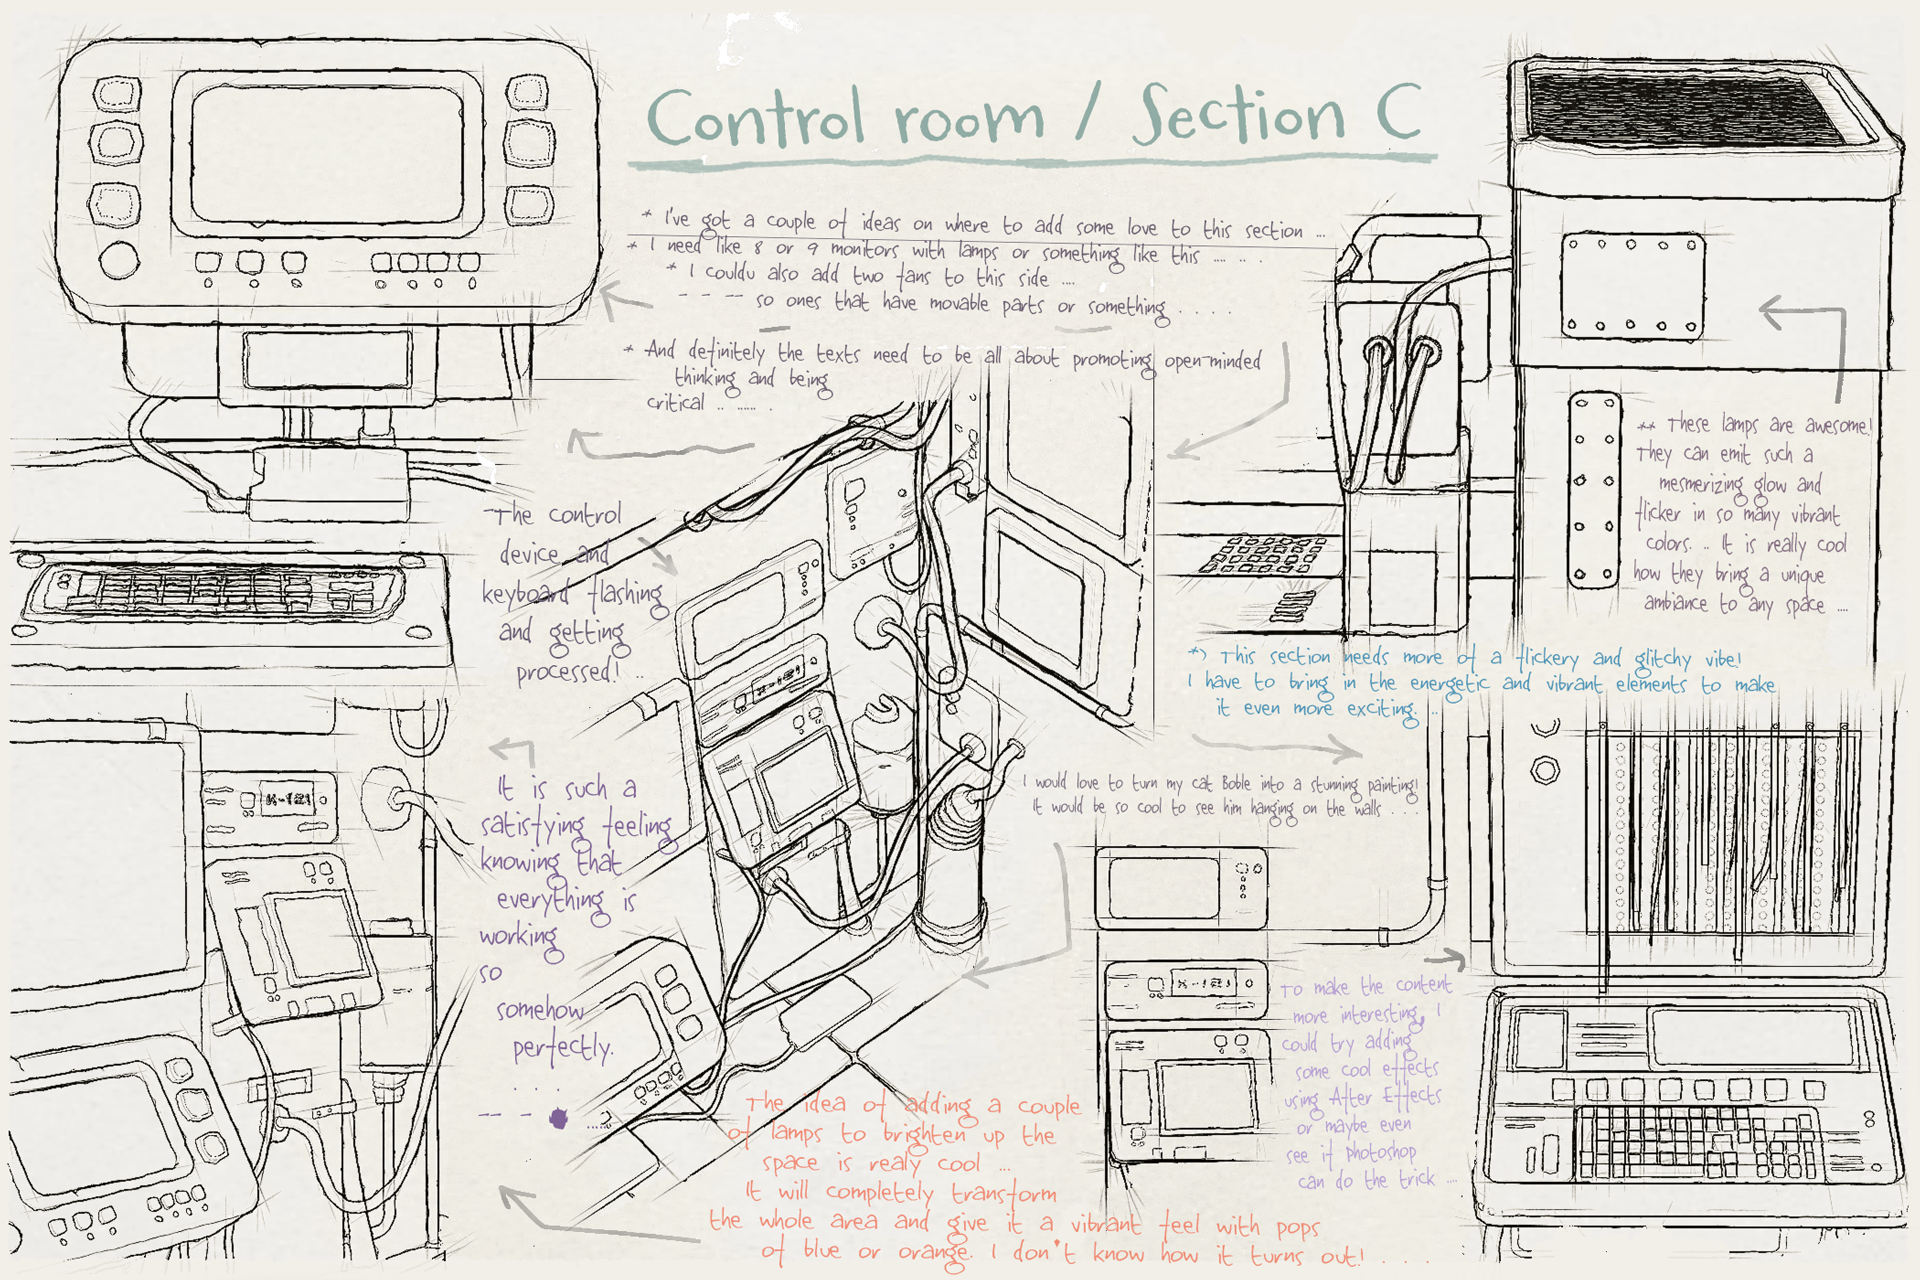 Control room / Section C
* I've got a couple of ideas on where to add some love to this section ...
* I need like 8 or 9 monitors with lamps or something like this .... .. .
* I couldu also add two fans to this side ....
- - -- so ones that have movable parts or something . . . .
* And definitely the texts need to be all about promoting open-minded
thinking and being
critical .. ...... .
** These lamps are awesome!
They can emit such a
mesmerizing glow and
flicker in so many vibrant
colors. .. It is really cool
how they bring a unique
ambiance to any space ....
The control
device and
keyboard flashing
and getting
processed! ..
*) This section needs more of a flickery and glitchy vibe!
I have to bring in the energetic and vibrant elements to make
it even more exciting. ..
It is such a
satisfying feeling
knowing that
everything is
working
so
somehow
perfectly.
. . . .
-- - ......
I would love to turn my cat Boble into a stunning painting!
It would be so cool to see him hanging on the walls . . . .
K-121
K-121
K-121
To make the content
more interesting, I
could try adding
some cool effects
using After Effects
or maybe even
see if photoshop
can do the trick ....
The idea of adding a couple
of lamps to brighten up the
space is realy cool ...
It will completely transform
the whole area and give it a vibrant feel with pops
of blue or orange. I don't know how it turns out! . . . .